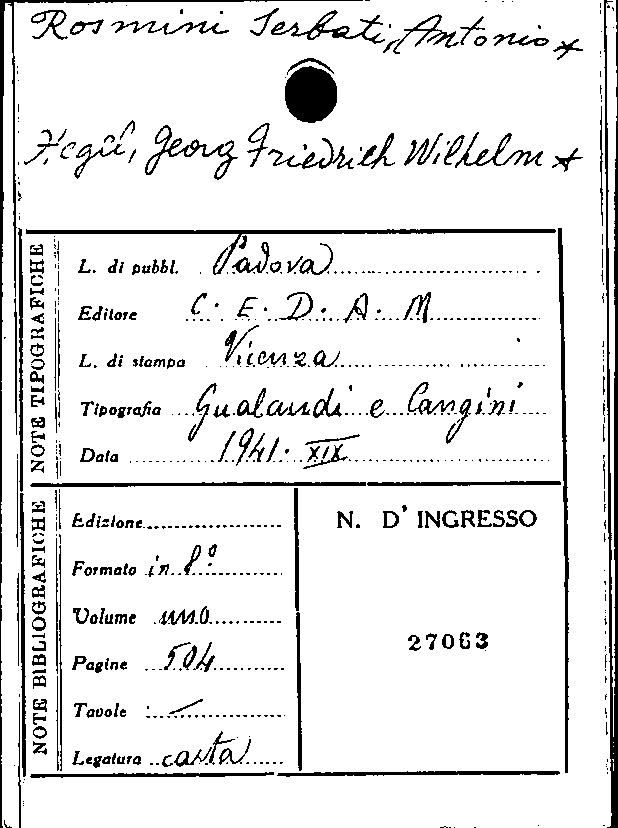 Rosmini Serbati, Antonio *
Hegel, Georg Friedrich Wilhelm *
NOTE TIPOGRAFICHE
L. di pubbl. Padova
Editore C. E. D. A. M
L. di stampa Vicenza
Tipografia Gualandi e Cangini
Data 1941. XIX
NOTE BIBLIOGRAFICHE
Edizione
Formato in 8º
Volume uno
Pagine 504
Tavole /
Legatura carta
N. D' INGRESSO
27063